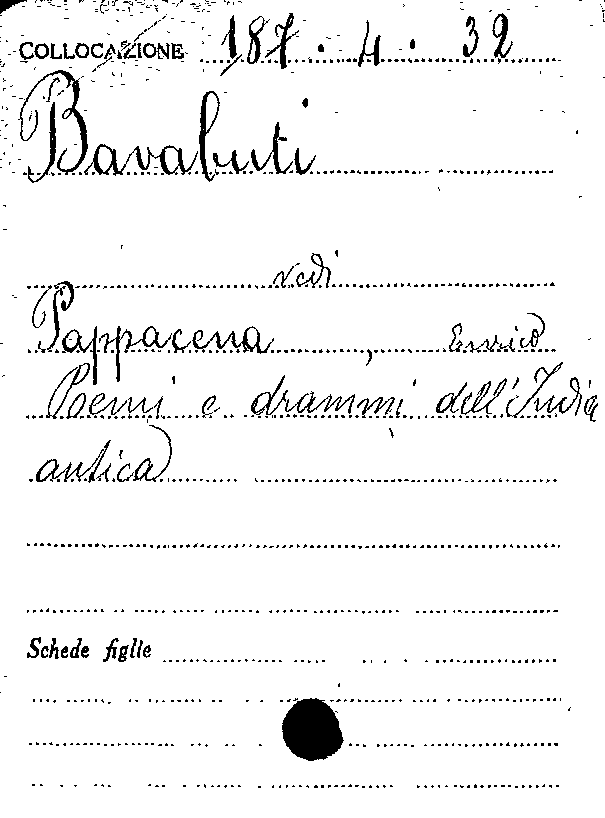 COLLOCAZIONE 187.4.32
Bavabuti
vedi
Pappacena, Enrico
Poemi e drammi dell'India
antica
Schede figlie